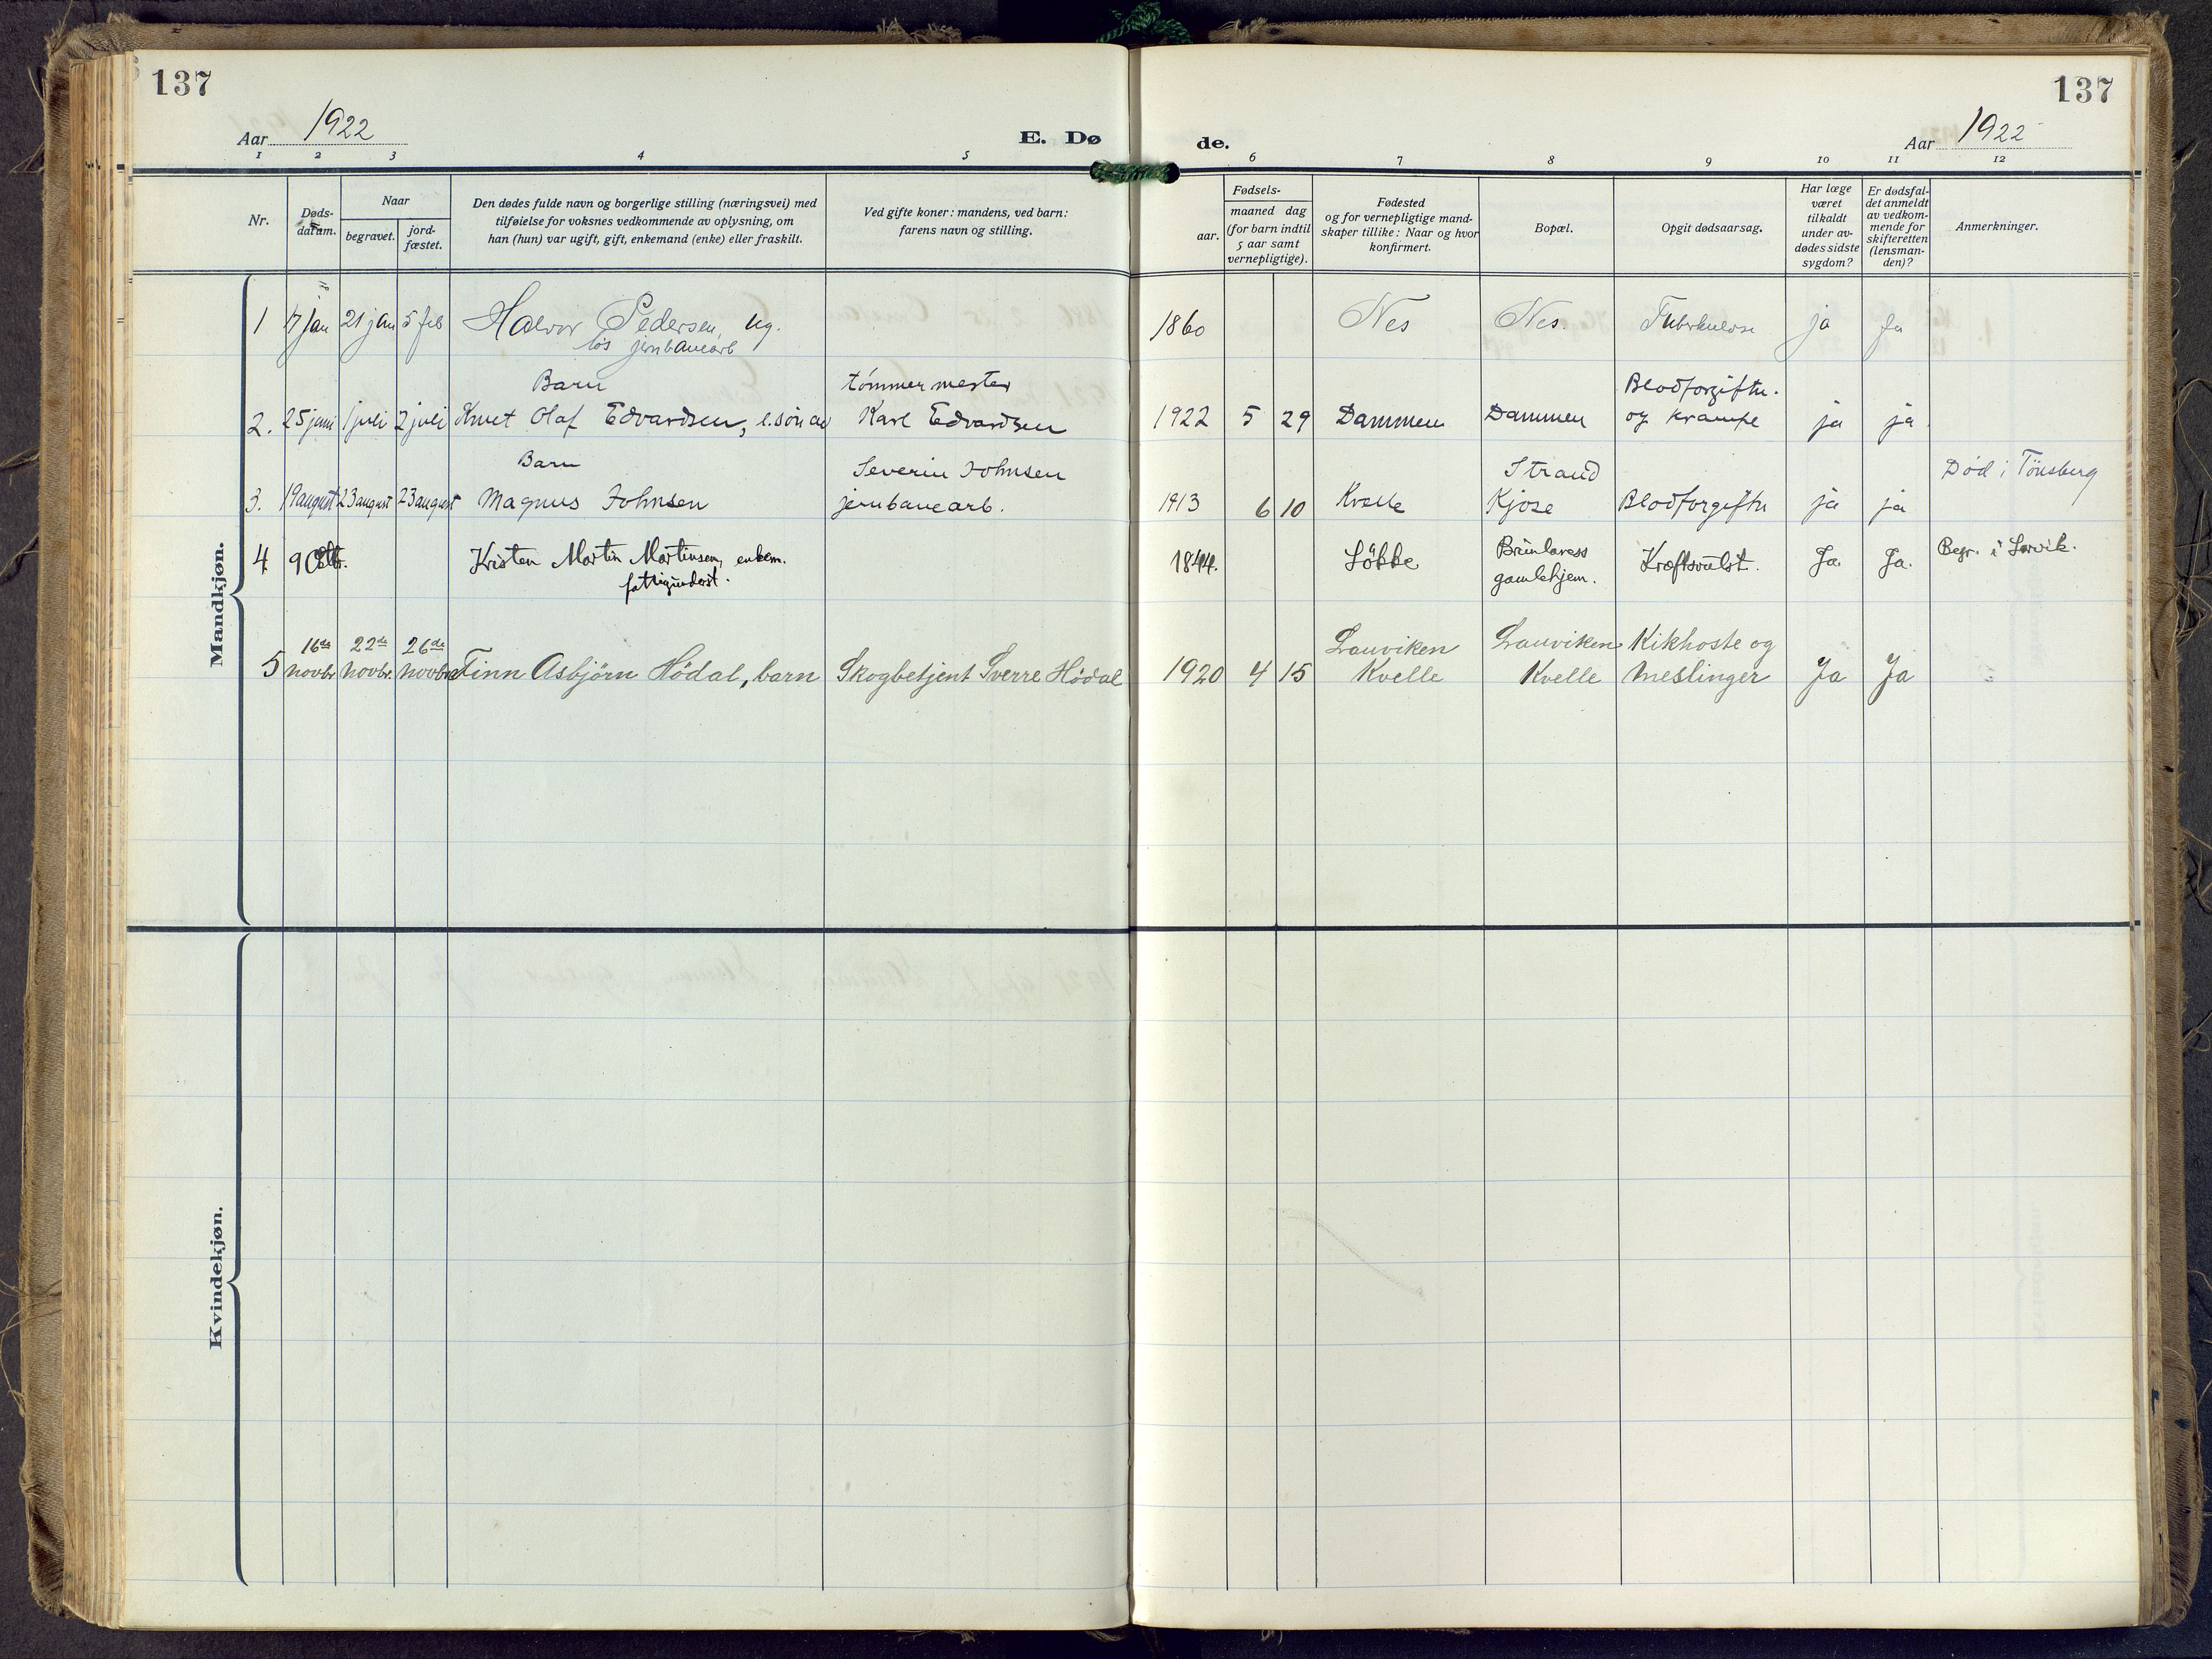 137
137
Aar 1922
E. Dø
de.
Aar 1922
1 2 3 4 5 6 7 8 9 10 11 12
Nr.
Døds-
datum.
Naar
begravet.
jord-
fæstet.
Den dødes fulde navn og borgerlige stilling (næringsvei) med
tilføielse for voksnes vedkommende av oplysning, om
han (hun) var ugift, gift, enkemand (enke) eller fraskilt.
Ved gifte koner: mandens, ved barn:
farens navn og stilling.
Fødsels-
aar.
maaned dag
(for barn indtil
5 aar samt
vernepligtige).
Fødested
og for vernepligtige mand-
skaper tillike: Naar og hvor
konfirmert.
Bopæl.
Opgit dødsaarsag.
Har læge
været
tilkaldt
under av-
dødes sidste
sygdom?
Er dødsfal-
det anmeldt
av vedkom-
mende for
skifteretten
(lensman-
den)?
Anmerkninger.
Mandkjøn.
1 7 jan 21 jan 5 feb Halvor Pedersen, ug. 1860 Nes Nes. Tuberkulose ja Ja
løs jernbanearb
Barn tömmermester Blodforgiftn.
2. 25 juni 1 juli 2 juli Knut Olaf Edvardsen, e. søn av Karl Edvardsen 1922 5 29 Dammen Dammen og krampe ja ja
Barn Severin Johnsen Strand Død i Tönsberg
3. 19 august 23 august 23 august Magnus Johnsen jernbanearb. 1913 6 10 Kvelle Kjose Blodforgiftn ja ja
4 9 Oktbr. Kristen Martin Martinsen, enkem. 1844. Löbbe Brunlaness Kræftsvulst. Ja Ja. Begr. i Larvik.
fattigunderst. gamlehjem.
16de 22de 26de Lauviken Lauviken Kikhoste og
5 novbr. novbr. novbr. Finn Asbjörn Hödal, barn Skogbetjent Sverre Hödal 1920 4 15 Kvelle Kvelle meslinger Ja Ja
Kvindekjøn.